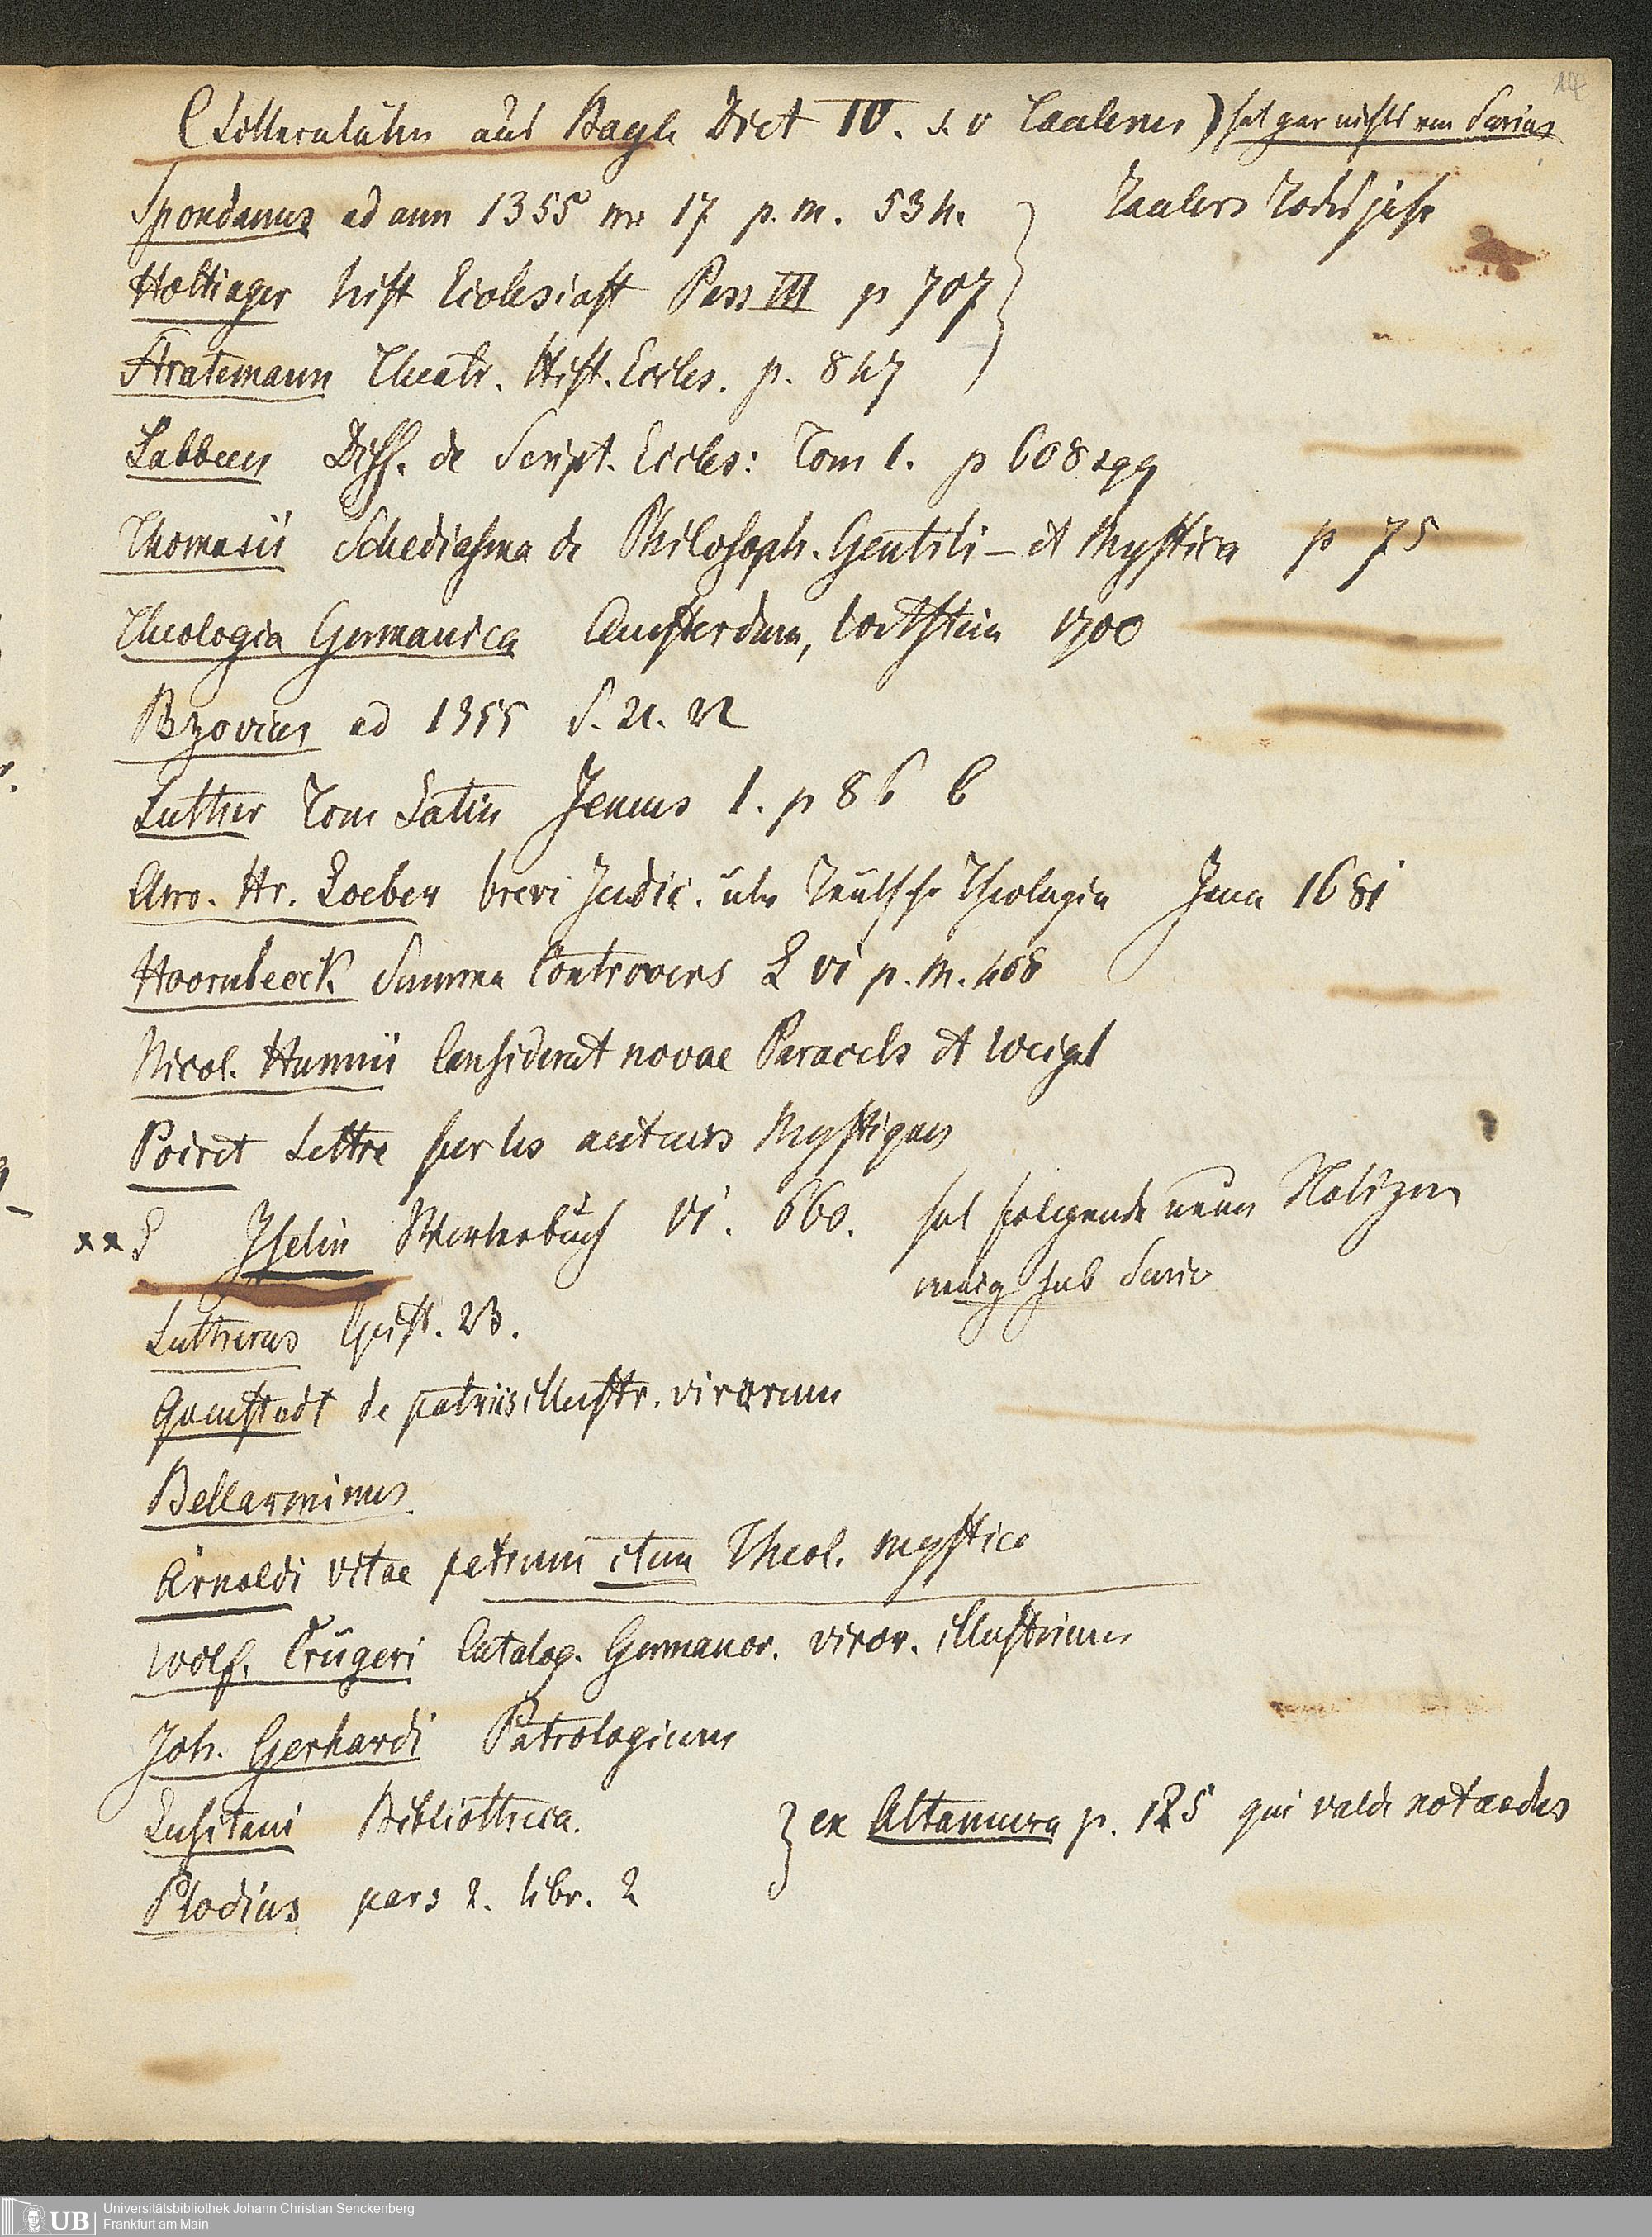 14
(Litteratur aus Bayle Dict IV. s. v Taulerus) hat gar nichts von Surius
Spondanus ad ann 1355 nr 17 p. m. 534.
Taulers Todesjahr
Hottinger hist Ecclesiast Pars III p 707
Stratemann Theatr. Hist. Eccles. p. 847
Labbeus Diss. de Script. Eccles: Tom 1. p 608 sqq
Thomasii Schediasma de Philosoph. Gentili – et Mystica p 75
Theologia Germanica Amsterdam, Wetstein 1700
Bzovius ad 1355 S. 21. 22
Luther Tom Latin Jenens 1. p 86 b
Chro. Hr. Loeber brevi Judic. über Teutsche Theologia Jena 1681
Hoornbeeck Summa Controvers L VI p. m. 408
Nicol. Hunnii Considerat novae Paracels et Weigel
Poiret Lettre sur les auteurs Mystiques
xx Iselin Wörterbuch VI. 660. hat folgende neuen Notizen
wenig sub Surio
Lutherus
Quenstedt de patriis illustr. virorum
Bellarminus
Arnoldi vitae patrum item Theol. mystica
Wolf. Crügeri Catalog. Germanor. viror. illustrium
Joh. Gerhardi Patrologium
Lusitani Bibliotheca.
ex Altamura p. 125 qui valde notandus
Plodius pars 2. libr. 2
Universitätsbibliothek Johann Christian Senckenberg
Frankfurt am Main
UB